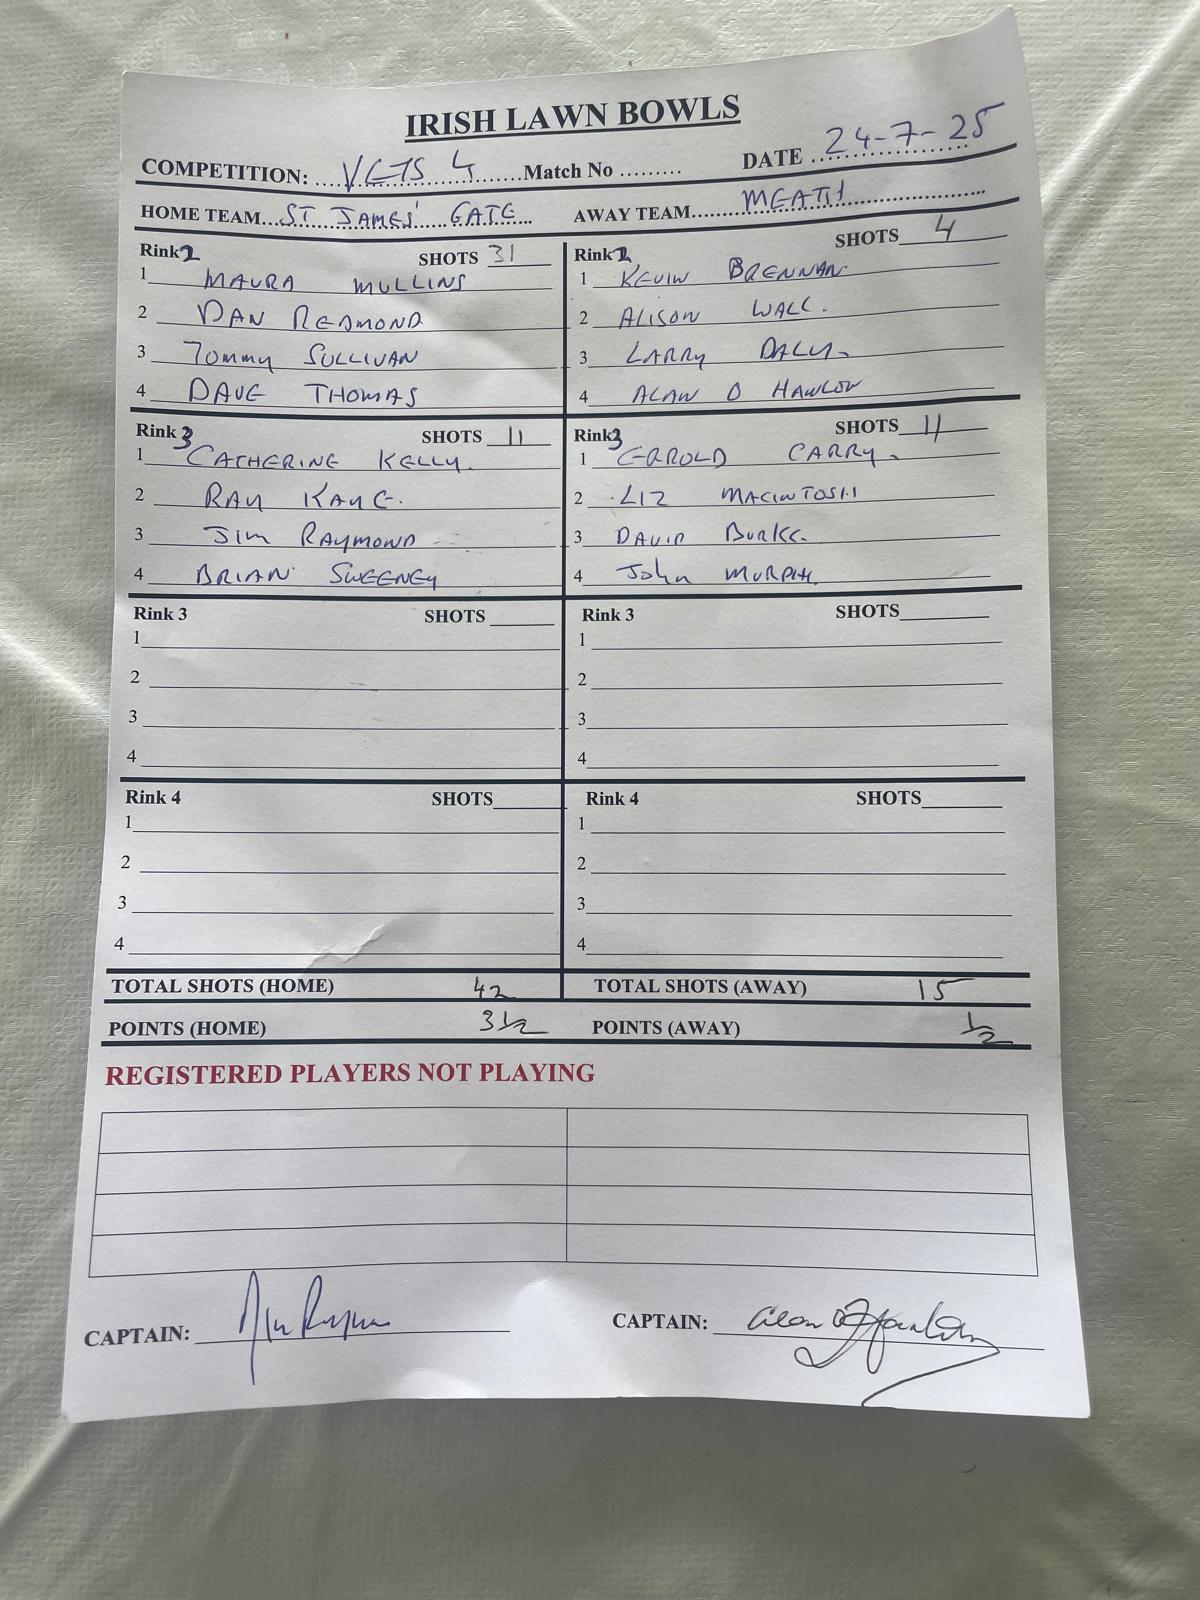 IRISH LAWN BOWLS
COMPETITION: VETS 4 Match No ......... DATE 24-7-25
HOME TEAM ST JAMES' GATE AWAY TEAM MEATH
Rink 2 SHOTS 31 Rink 2 SHOTS 4
1 MAURA MULLINS 1 KEVIN BRENNAN
2 DAN REDMOND 2 ALISON WALL.
3 TOMMY SULLIVAN 3 LARRY DALY.
4 DAVE THOMAS 4 ALAN O HANLON
Rink 3 SHOTS 11 Rink 3 SHOTS 11
1 CATHERINE KELLY. 1 GEROLD CARRY.
2 RAY KAYE. 2 LIZ MACINTOSH
3 JIM RAYMOND 3 DAVID BURKE.
4 BRIAN SWEENEY 4 John MURPH.
Rink 3 SHOTS Rink 3 SHOTS
1 1
2 2
3 3
4 4
Rink 4 SHOTS Rink 4 SHOTS
1 1
2 2
3 3
4 4
TOTAL SHOTS (HOME) 42 TOTAL SHOTS (AWAY) 15
POINTS (HOME) 3 1/2 POINTS (AWAY) 1/2
REGISTERED PLAYERS NOT PLAYING
CAPTAIN: CAPTAIN: